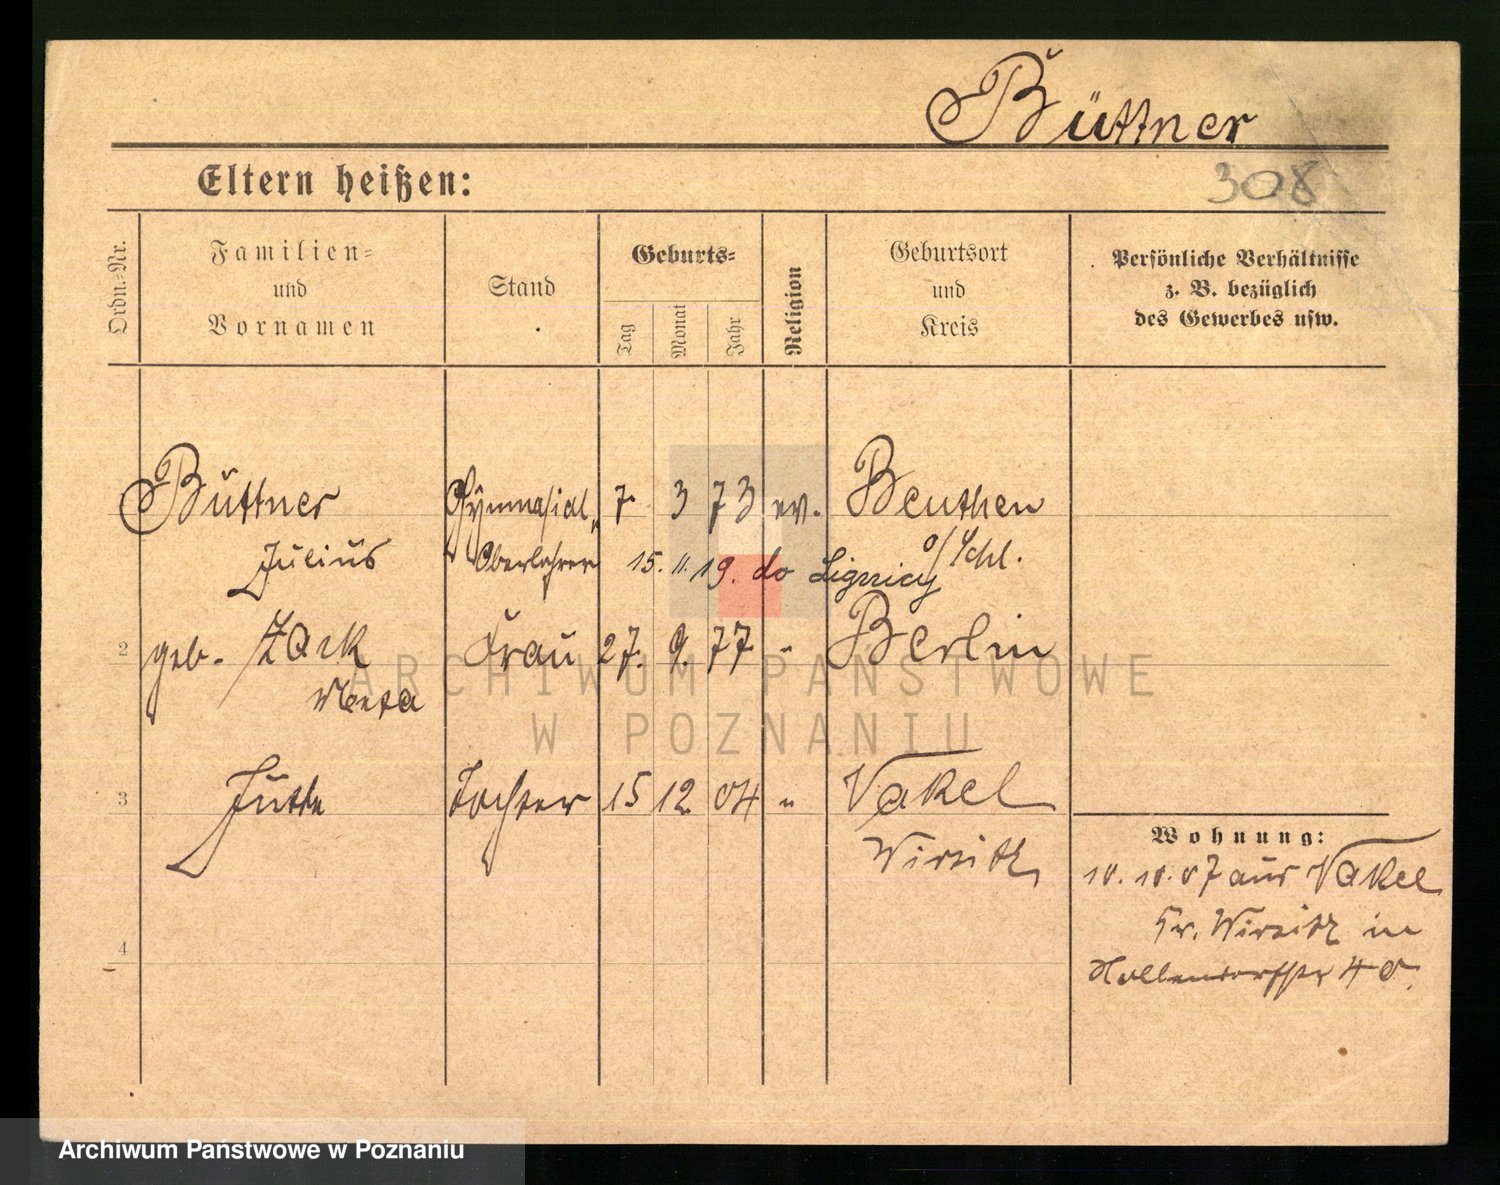 Büttner
Eltern heißen:
308
Ordn.-Nr.
Familien-
und
Vornamen
Stand
Geburts-
Tag
Monat
Jahr
Religion
Geburtsort
und
Kreis
Persönliche Verhältnisse
z. B. bezüglich
des Gewerbes usw.
Büttner Gymnasial 7. 3 73 ev. Beuthen
o/Schl.
Julius Oberlehrer 15. 11. 19. do
2 geb. Zack Frau 27. 9. 77 " Berlin
Meta
ARCHIWUM PAŃSTWOWE
W POZNANIU
3 Jutta Tochter 15 12 04 " Nakel
Wirsitz
Wohnung:
10. 10. 07 aus Nakel
Kr. Wirsitz in
4
Archiwum Państwowe w Poznaniu